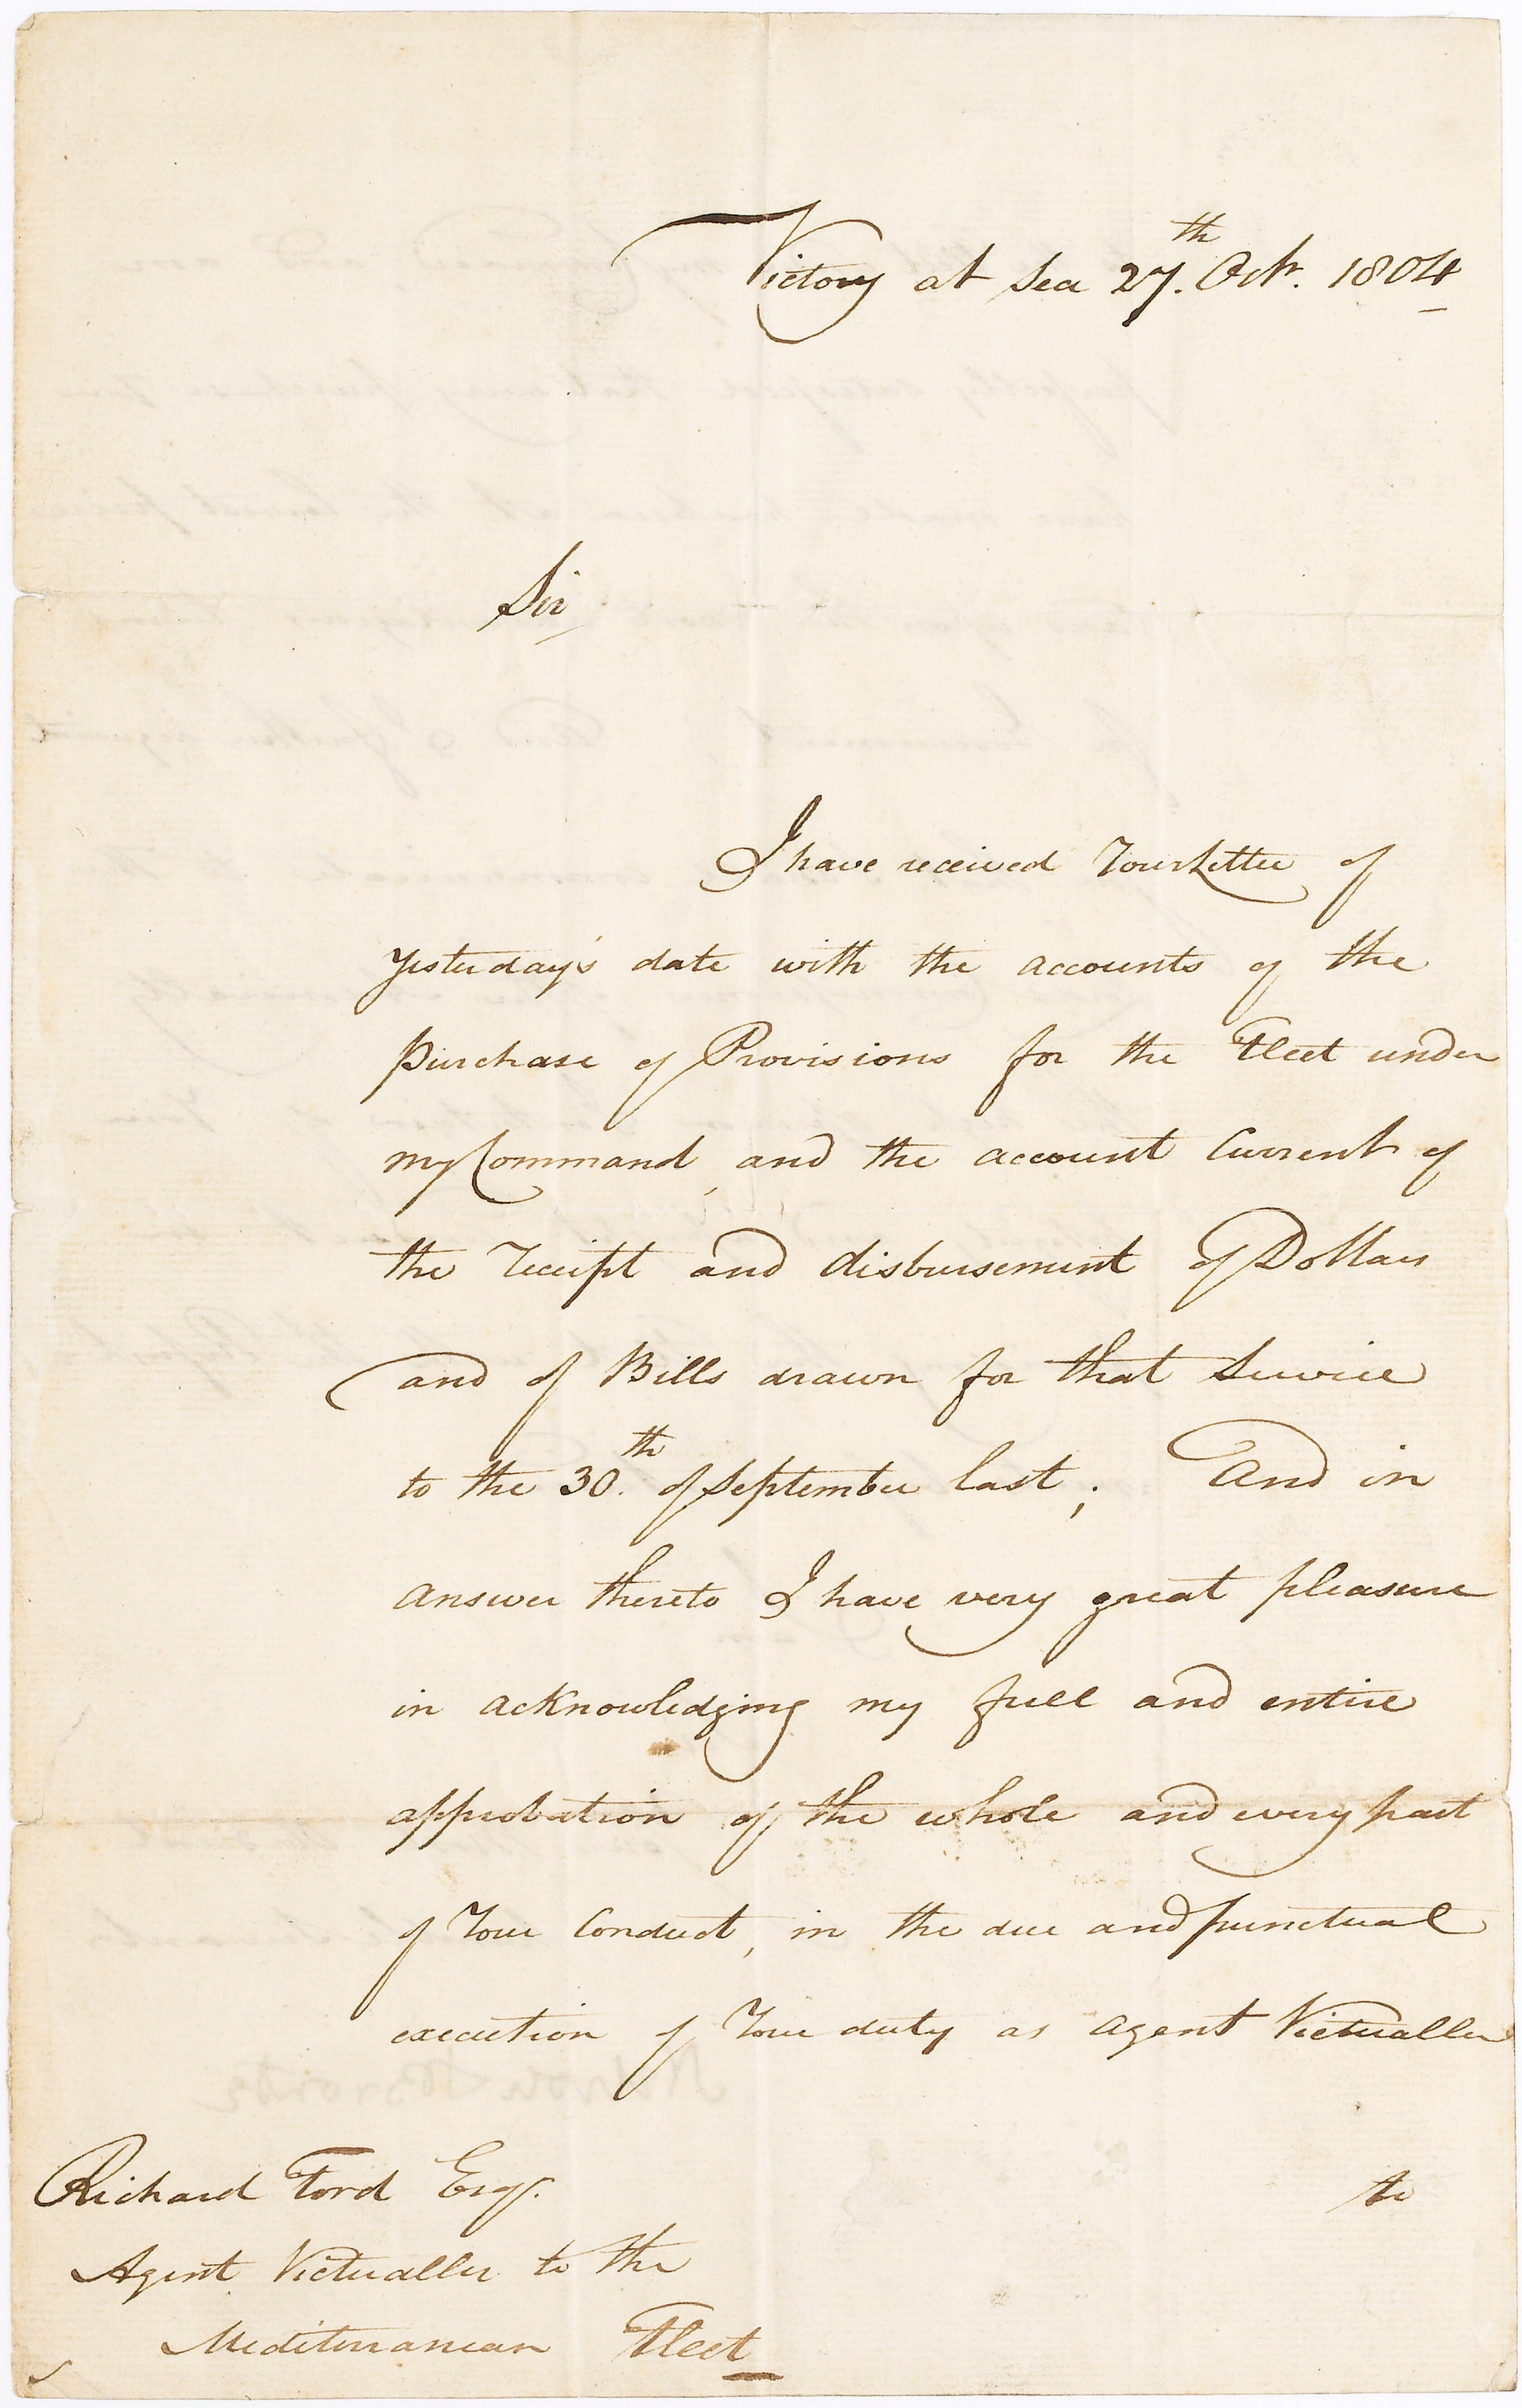 Victory at Sea 27.th Octr. 1804
Sir
I have received Your Letter of
Yesterday's date with the accounts of the
purchase of Provisions for the Fleet under
my Command, and the account Current of
the receipt and disbursement of Dollars
and of Bills drawn for that Service
to the 30.th of September last; And in
answer thereto I have very great pleasure
in acknowledging my full and entire
approbation of the whole and every part
of Your Conduct, in the due and punctual
execution of Your duty as Agent Victualler
to
Richard Ford Esqr.
Agent Victualler to the
Mediterranean Fleet